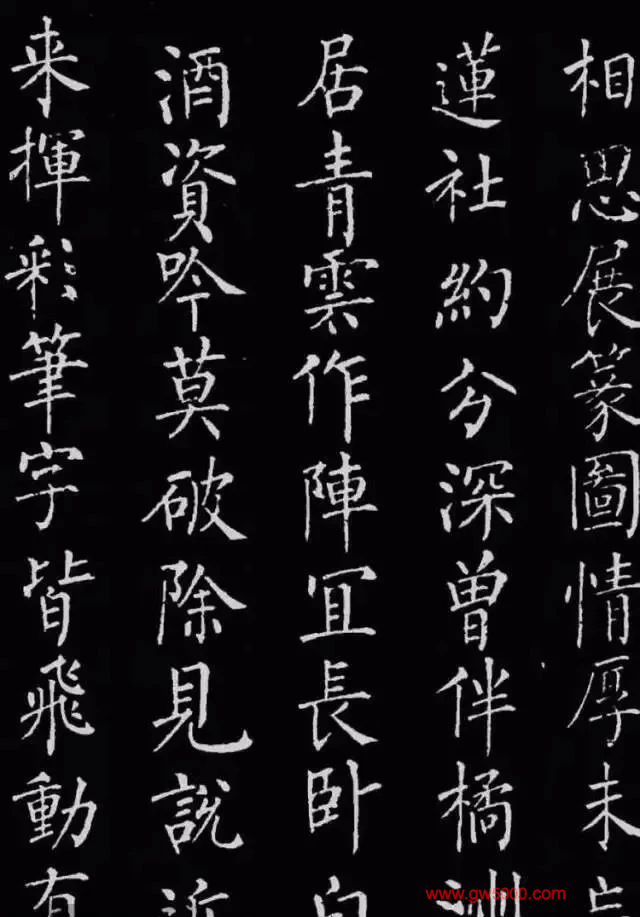 相思展篆圖情厚未
蓮社約分深曾伴橘洲
居青雲作陣冝長卧白
酒資吟莫破除見說近
来揮彩筆字皆飛動有
www.gw5000.com